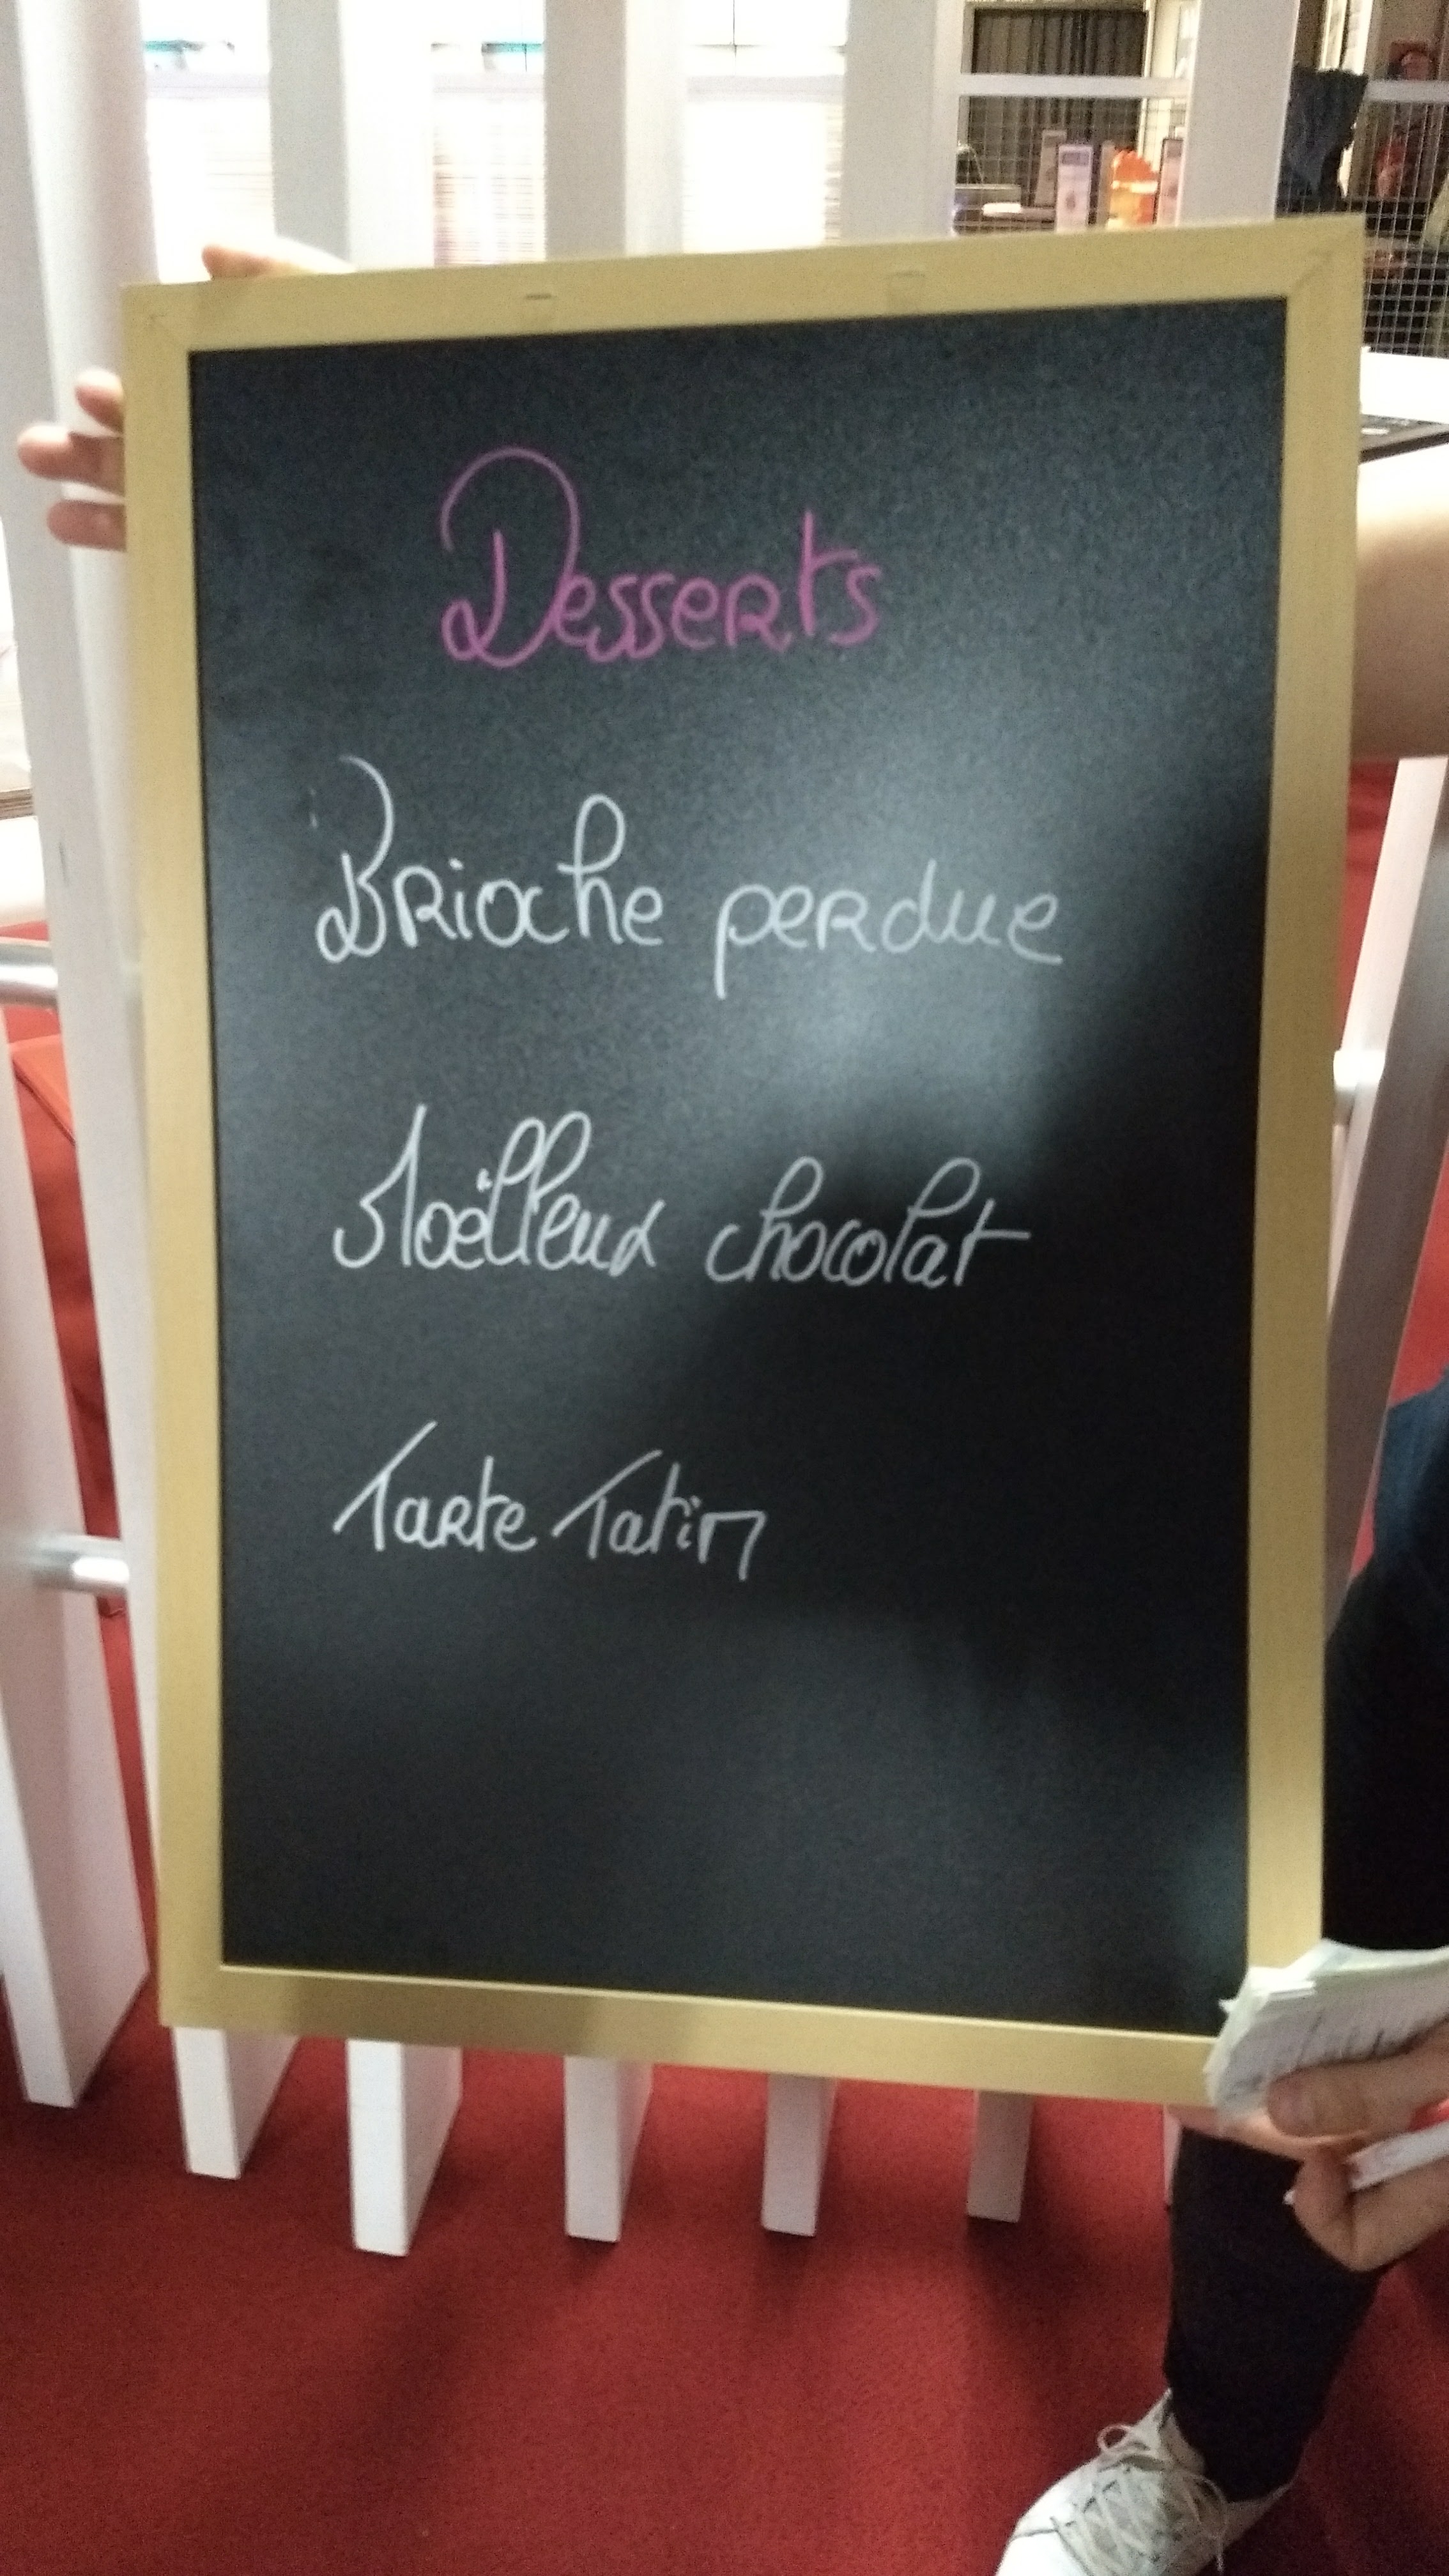 Desserts
Brioche perdue
Moëlleux chocolat
Tarte Tatin